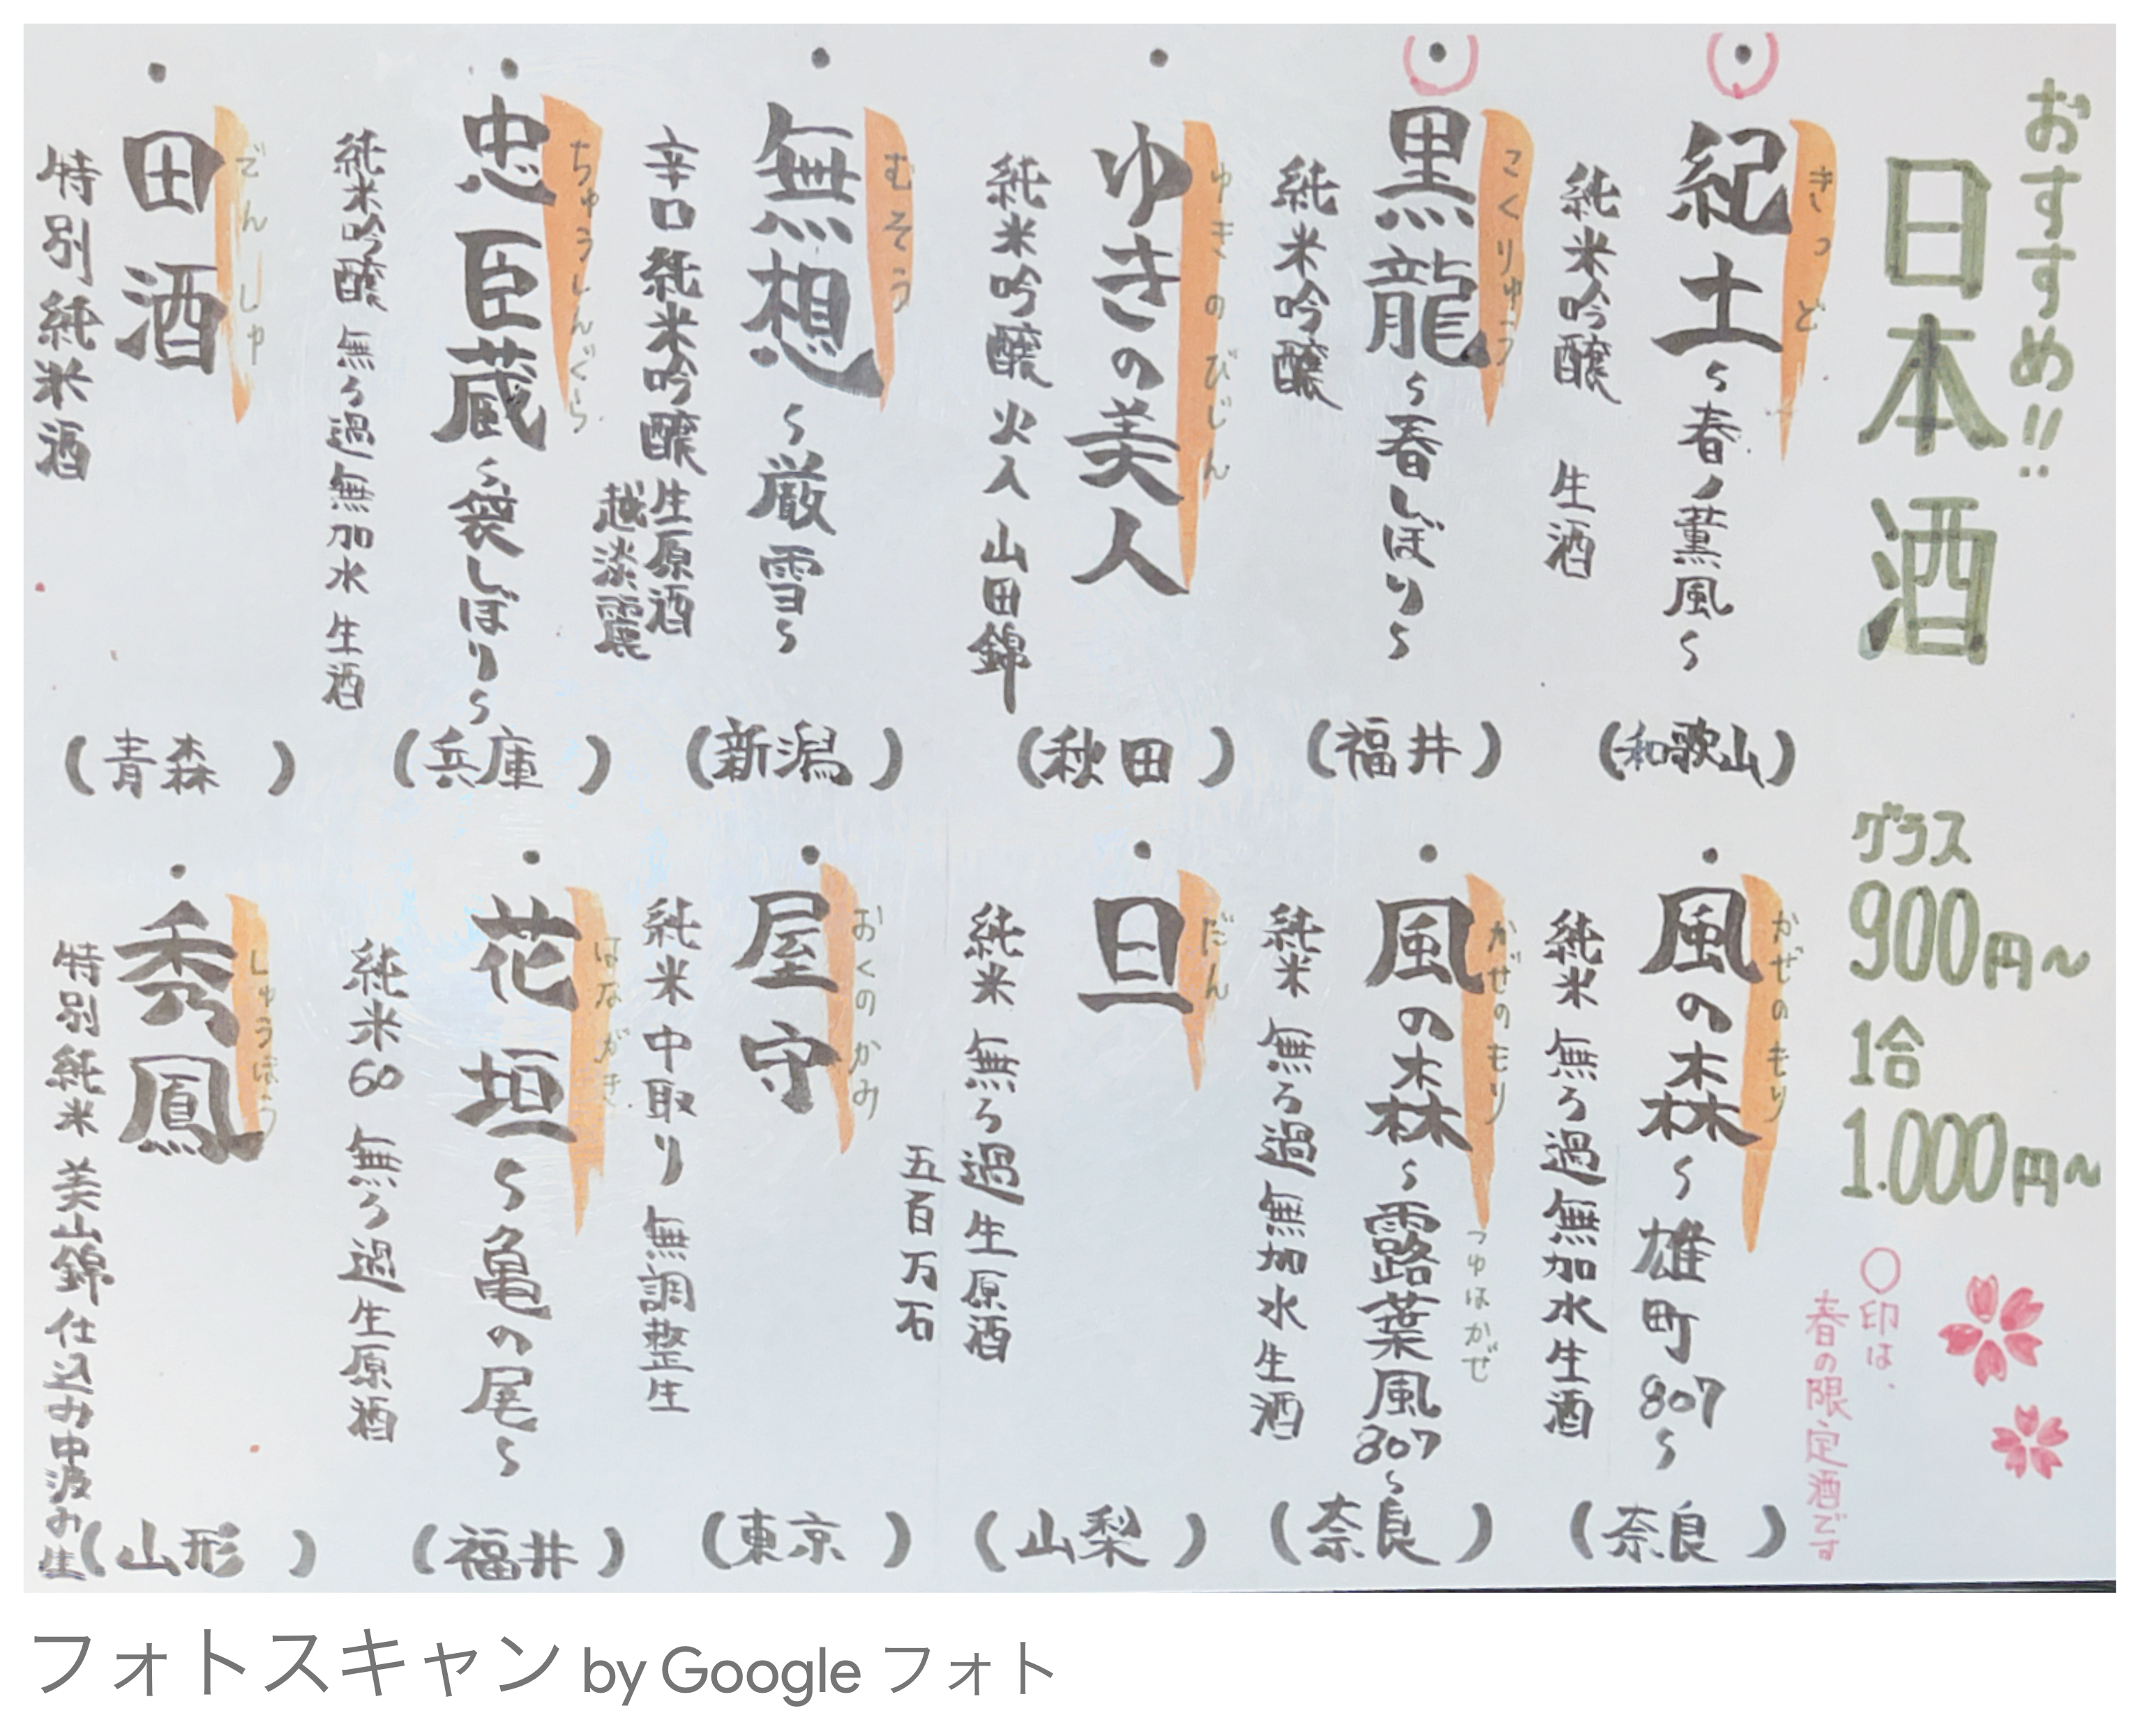 おすすめ!!
日本酒
グラス
900円～
1合
1.000円～
○印は、
春の限定酒です
きっど
紀土～春ノ薫風～
純米吟醸 生酒
(和歌山)
こくりゅう
黒龍～春しぼり～
純米吟醸
(福井)
ゆきのびじん
ゆきの美人
純米吟醸 火入 山田錦
(秋田)
むそう
無想～厳雪～
辛口 純米吟醸 生原酒
越淡麗
(新潟)
ちゅうしんぐら
忠臣蔵～袋しぼり～
純米吟醸 無ろ過無加水 生酒
(兵庫)
でんしゅ
田酒
特別純米酒
(青森)
かぜのもり
風の森～雄町807～
純米 無ろ過無加水生酒
(奈良)
かぜのもり
つゆはかぜ
風の森～露葉風807～
純米 無ろ過無加水生酒
(奈良)
だん
旦
純米 無ろ過生原酒
五百万石
(山梨)
おくのかみ
屋守
純米 中取り 無調整生
(東京)
はながき
花垣～亀の尾～
純米60 無ろ過生原酒
(福井)
しゅうほう
秀鳳
特別純米 美山錦仕込み中汲み生
(山形)
フォトスキャン by Google フォト